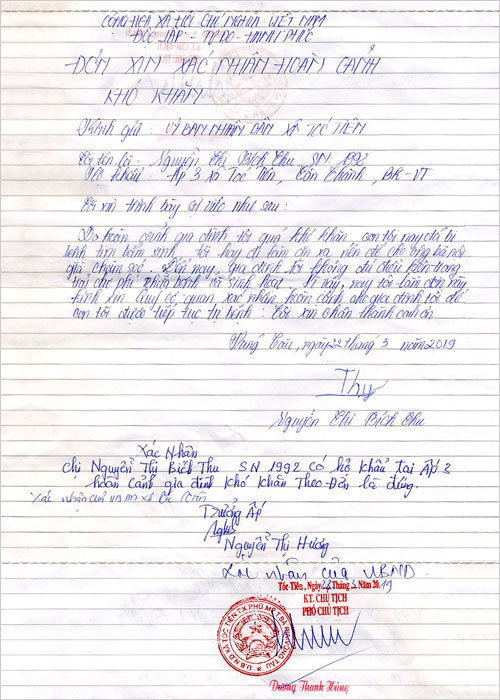 CỘNG HÒA XÃ HỘI CHỦ NGHĨA VIỆT NAM
ĐỘC LẬP - TỰ DO - HẠNH PHÚC
ĐƠN XIN XÁC NHẬN HOÀN CẢNH
KHÓ KHĂN
Kính gửi : ỦY BAN NHÂN DÂN XÃ TÓC TIÊN
Tôi tên là : Nguyễn Thị Bích Thu SN 1992
Hộ khẩu : Ấp 3 xã Tóc Tiên, Tân Thành, BR-VT
Tôi xin trình bày sự việc như sau :
Do hoàn cảnh gia đình tôi quá khó khăn con tôi nay đã bị
bệnh tim bẩm sinh tôi hay đi làm ăn xa nên để cho ông bà nội
già chăm sóc . Đến nay, gia đình tôi không đủ điều kiện trang
trải chi phí chữa bệnh và sinh hoạt . Vì vậy, nay tôi làm đơn này
kính xin quý cơ quan, xác nhận hoàn cảnh cho gia đình tôi để
con tôi được tiếp tục trị bệnh : Tôi xin chân thành cảm ơn
ngày 22 tháng 3 năm 2019
Thu
Nguyễn Thị Bích Thu
Xác Nhận
chị Nguyễn Thị Bích Thu SN 1992 có hộ khẩu tại Ấp 3
hoàn cảnh gia đình khó khăn Theo Đơn là đúng.
Xác nhận của UBND xã Tóc Tiên
Trưởng Ấp
Nguyễn Thị Hương
Xác nhận của UBND.
Tóc Tiên, Ngày Tháng 3 Năm 2019
KT. CHỦ TỊCH
PHÓ CHỦ TỊCH
U.B.N.D XÃ TÓC TIÊN T.X PHÚ MỸ T. BÀ RỊA VŨNG TÀU
Dương Thanh Hùng